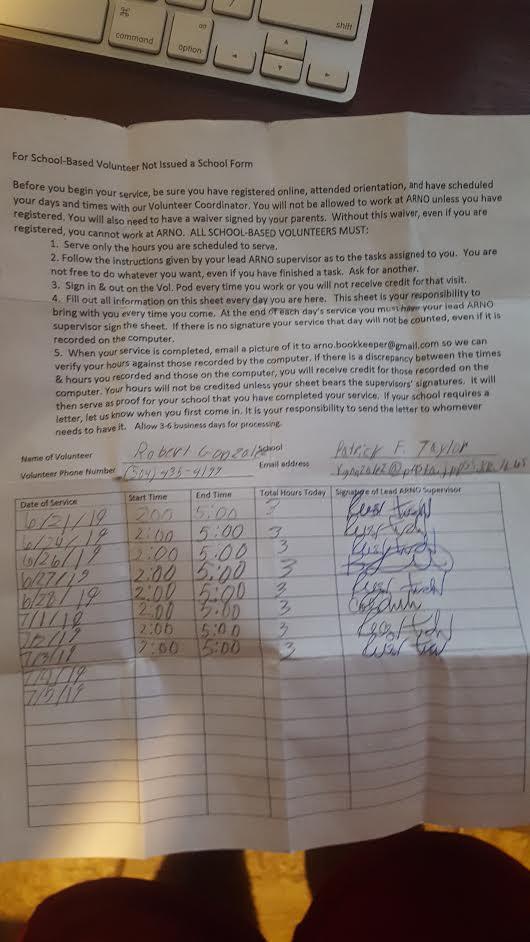 shift
⌘
alt
command
option
For School-Based Volunteer Not Issued a School Form
Before you begin your service, be sure you have registered online, attended orientation, and have scheduled
your days and times with our Volunteer Coordinator. You will not be allowed to work at ARNO unless you have
registered. You will also need to have a waiver signed by your parents. Without this waiver, even if you are
registered, you cannot work at ARNO. ALL SCHOOL-BASED VOLUNTEERS MUST:
1. Serve only the hours you are scheduled to serve.
2. Follow the instructions given by your lead ARNO supervisor as to the tasks assigned to you. You are
not free to do whatever you want, even if you have finished a task. Ask for another.
3. Sign in & out on the Vol. Pod every time you work or you will not receive credit for that visit.
4. Fill out all information on this sheet every day you are here. This sheet is your responsibility to
bring with you every time you come. At the end of each day's service you must have your lead ARNO
supervisor sign the sheet. If there is no signature your service that day will not be counted, even if it is
recorded on the computer.
5. When your service is completed, email a picture of it to arno.bookkeeper@gmail.com so we can
verify your hours against those recorded by the computer. If there is a discrepancy between the times
& hours you recorded and those on the computer, you will receive credit for those recorded on the
computer. Your hours will not be credited unless your sheet bears the supervisors' signatures. It will
then serve as proof for your school that you have completed your service. If your school requires a
letter, let us know when you first come in. It is your responsibility to send the letter to whomever
needs to have it. Allow 3-6 business days for processing.
Name of Volunteer Robert Gonzalez School Patrick F. Taylor
Volunteer Phone Number (504)-435-4199 Email address
Date of Service Start Time End Time Total Hours Today Signature of Lead ARNO Supervisor
6/21/19 200 5:00 3
6/24/19 2:00 5:00 3
6/26/19 2:00 5:00 3
6/27/19 2:00 5:00 3
6/28/19 2:00 5:00 3
7/1/19 2:00 5:00 3
7/2/19 2:00 5:00 3
7/3/19 2:00 5:00 3
7/4/19
7/5/19